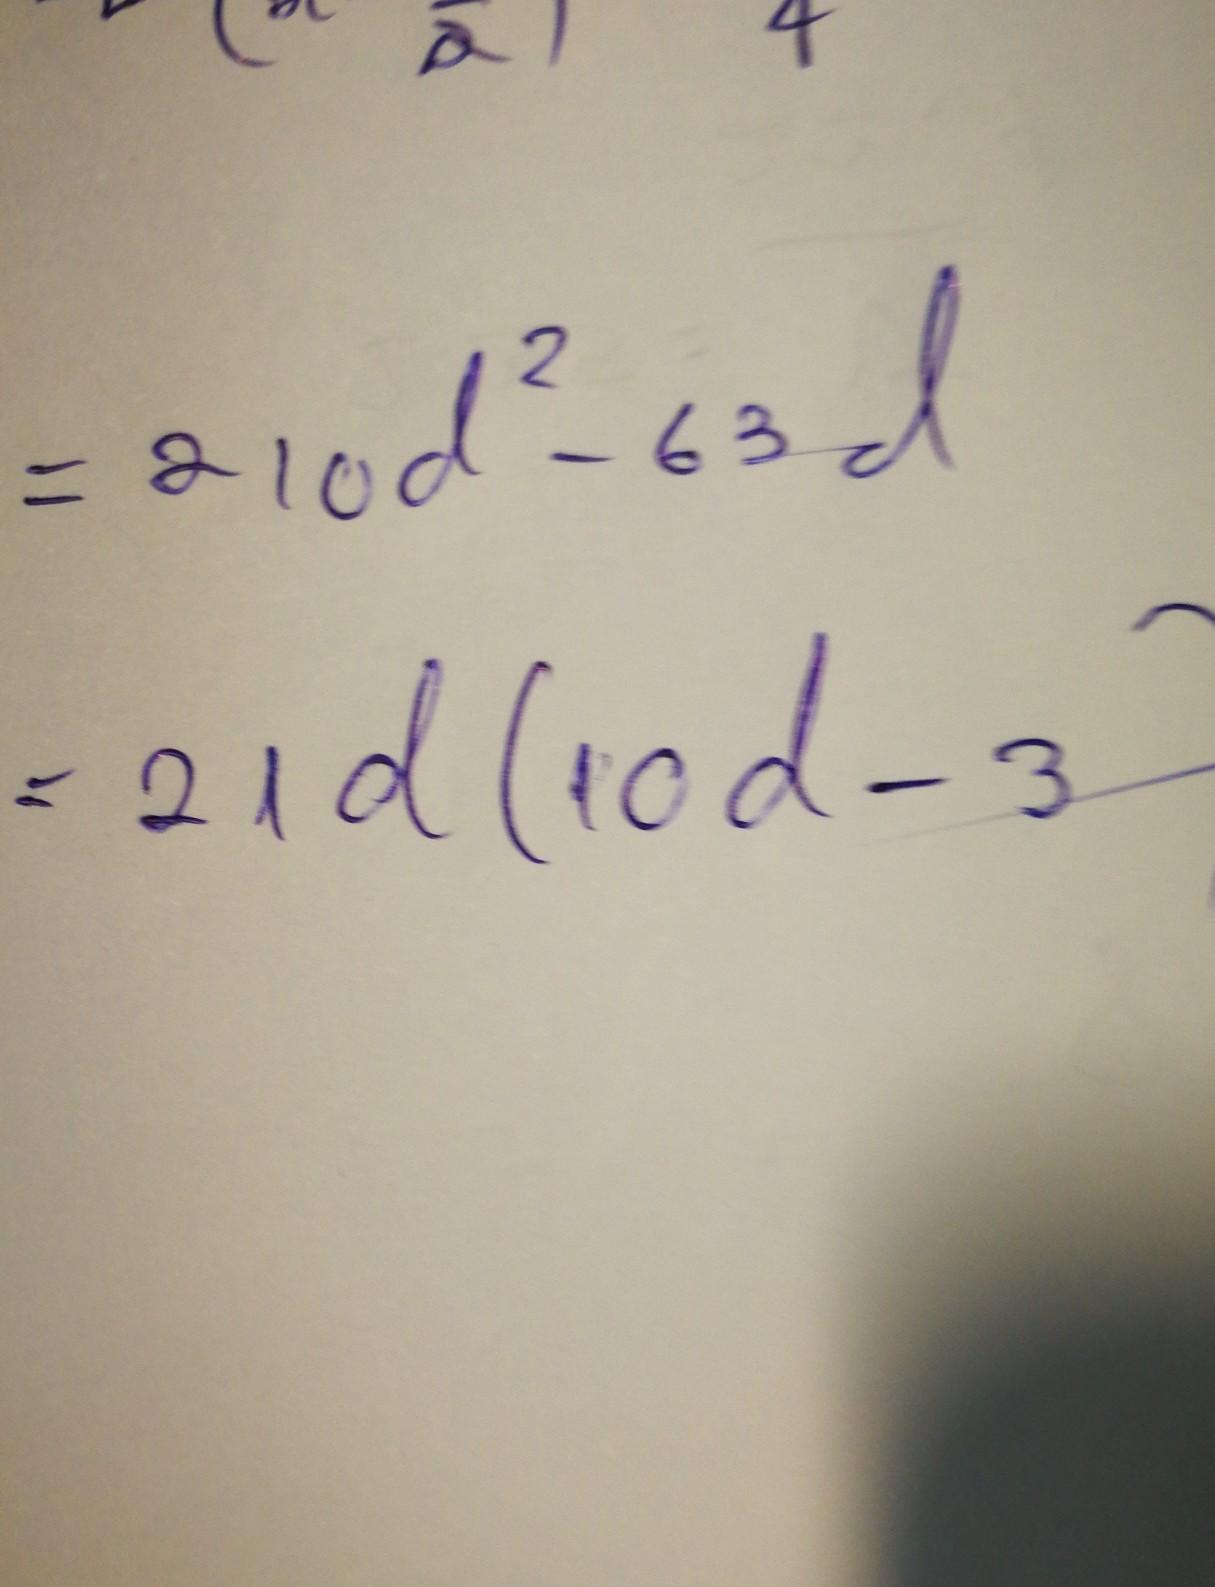 = 210d² - 63d
= 21d (10d - 3